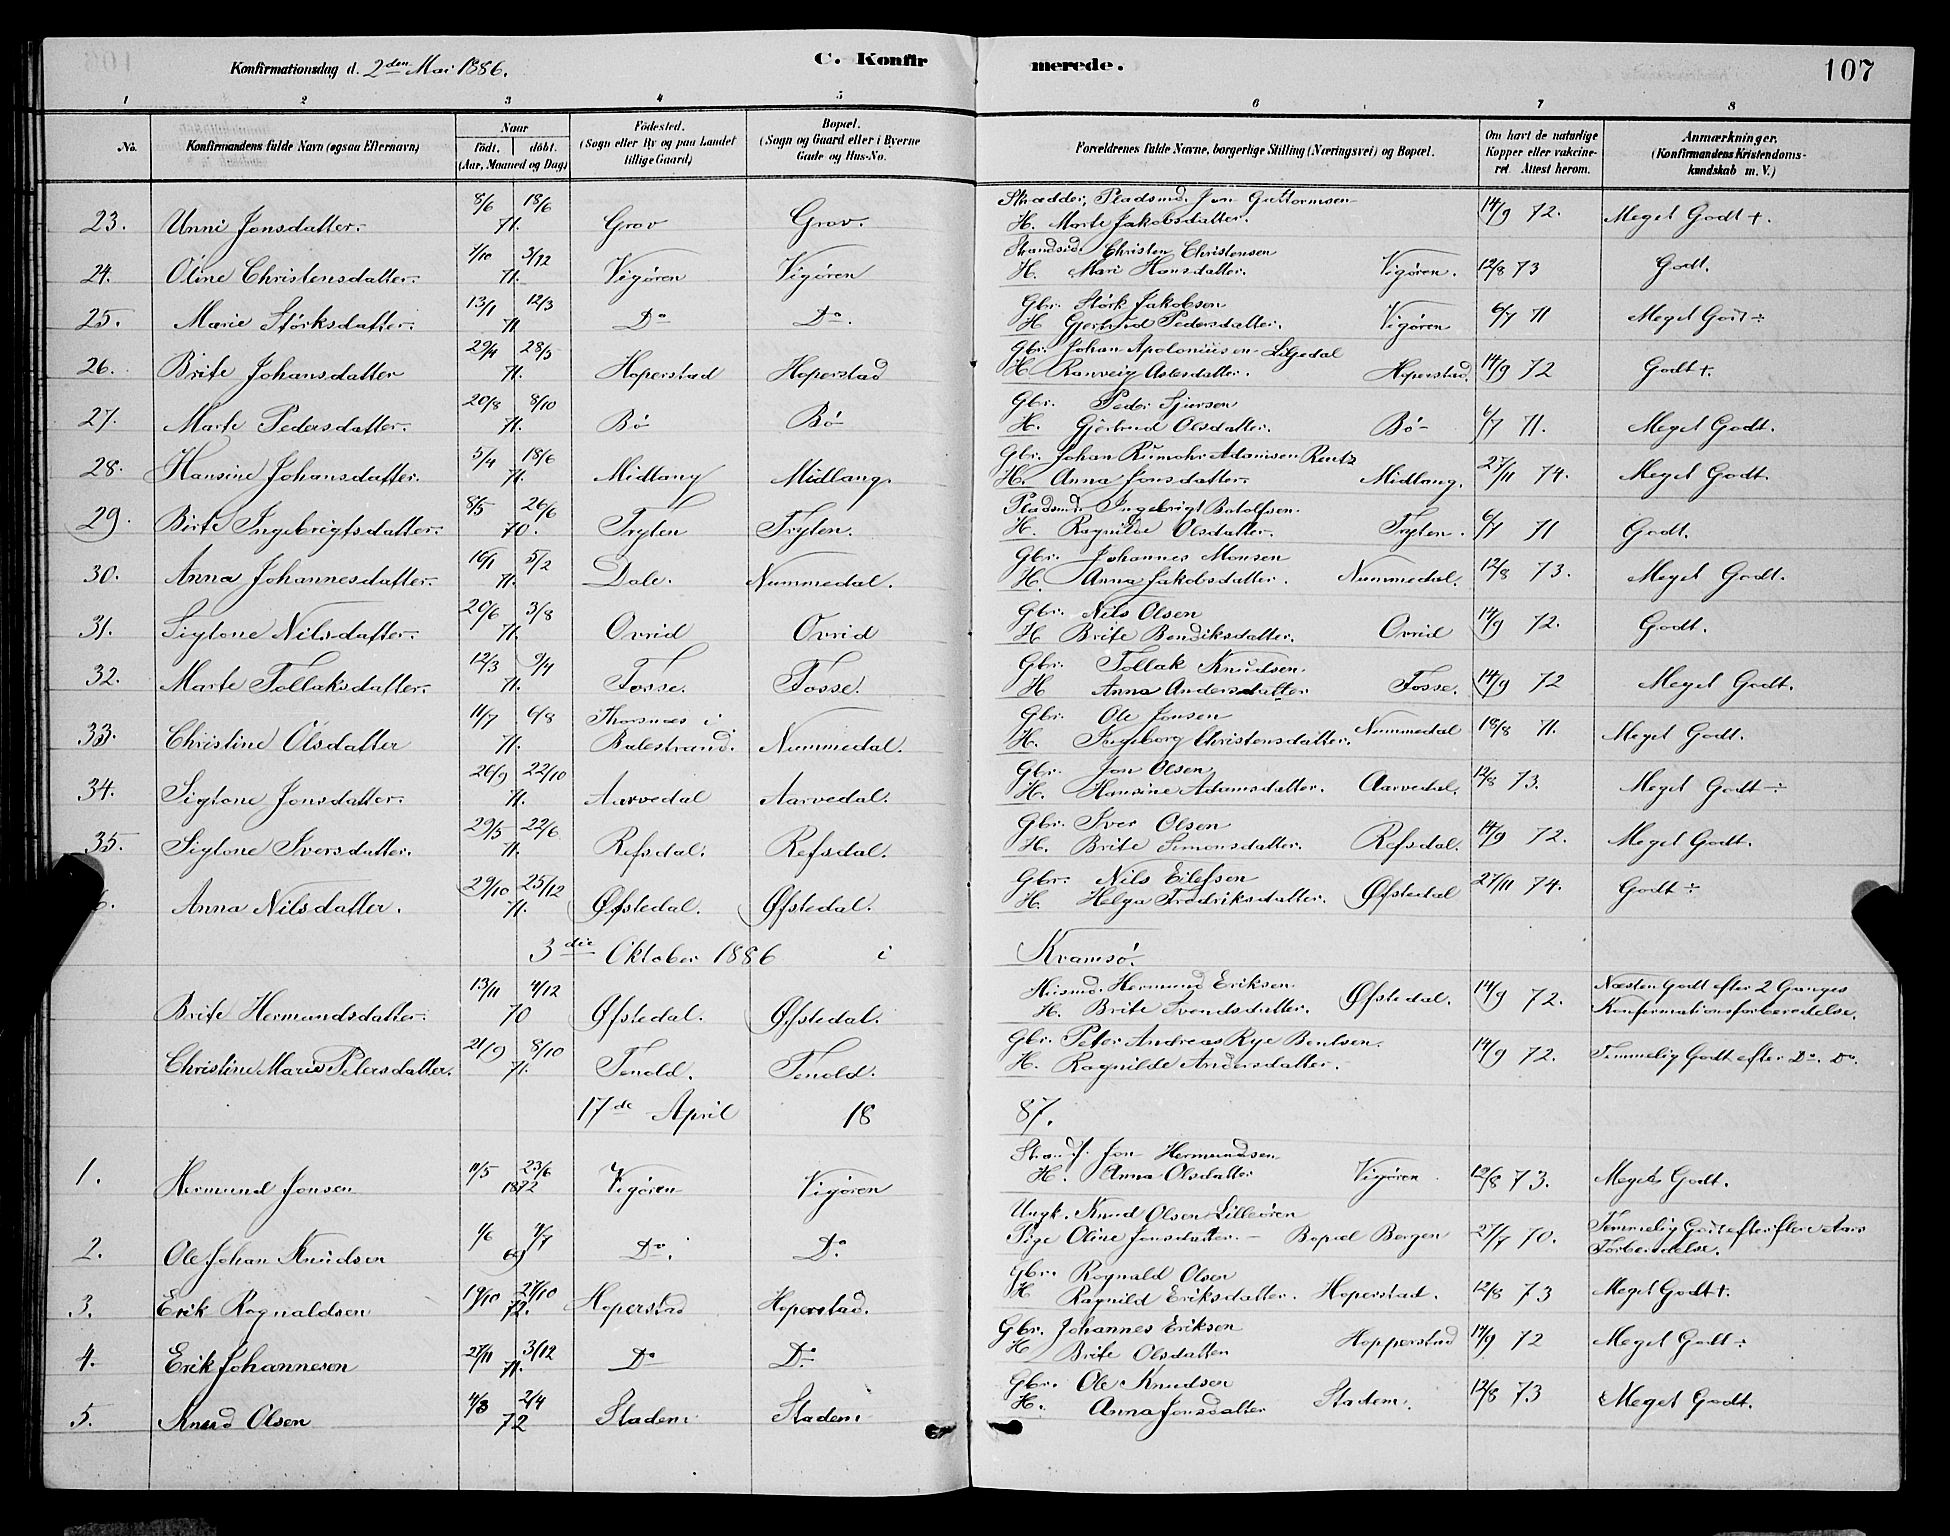 Konfirmationsdag d. 2den Mai 1886.
C. Konfirmerede.
107
1 2 3 4 5 6 7 8
No.
Konfirmandens fulde Navn (ogsaa Efternavn)
Naar
født. døbt.
(Aar, Maaned og Dag)
Fødested.
(Sogn eller By og paa Landet
tillige Gaard)
Bopæl.
(Sogn og Gaard eller i Byerne
Gade og Hus-No.
Forældrenes fulde Navne, borgerlige Stilling (Næringsvei) og Bopæl.
Om havt de naturlige
Kopper eller vakcine-
ret Attest herom.
Anmærkninger.
(Konfirmandens Kristendoms-
kundskab m. V.)
8/6 18/6 Skrædder, Pladsmd. Jon Guttormsen
23. Unni Jonsdatter. 71. Grov Grov. H. Marte Jakobsdatter. 14/9 72. Meget Godt +.
1/10 3/12 Strandsid. Christen Christensen
24. Oline Christensdatter. 71. Vigören Vigören H. Mari Hansdatter. Vigören. 12/8 73 Godt.
13/1 12/3 Gbr. Störk Jakobsen
25. Marie Störksdatter. 71 Do Do. H Gjertrud Pedersdatter. Vigören 6/7 71 Meget Godt ÷
29/4 28/5 Gbr. Johan Apoloniusen Liljedal
26. Brite Johansdatter 71. Hoperstad Hoperstad H. Ranveig Aslesdatter. Hoperstad. 14/9 72 Godt +.
20/8 8/10 Gbr. Peder Sjursen
27. Marte Pedersdatter. 71. Bö Bö H. Gjertrud Olsdatter. Bö 6/7 71. Meget Godt.
5/4 18/6 Gbr. Johan Rumohr Adamsen Rentz
28. Hansine Johansdatter. 71. Midlang Midlang. H. Anna Jonsdatter. Midlang. 27/11 74. Meget Godt.
8/5 26/6 Pladsmd. Ingebrigt Botolfsen.
29. Brite Ingebrigtsdatter. 70. Tryten Tryten. H. Ragnilde Olsdatter. Tryten. 6/7 71 Godt.
16/1 5/2 Gbr. Johannes Monsen
30. Anna Johannesdatter. 71. Dale. Nummedal. H. Anna Jakobsdatter. Nummedal. 12/8 73. Meget Godt.
20/6 3/8 Gbr. Nils Olsen
31. Siglone Nilsdatter. 71. Ovrid Ovrid H Brite Bendiksdatter. Ovrid 14/9 72. Godt.
12/3 9/4 Gbr. Tollak Knudsen.
32. Marte Tollaksdatter. 71. Fosse. Fosse. H Anna Andersdatter Fosse. 14/9 72 Meget Godt.
11/7 6/8 Thorsnæs i Gbr. Ole Jonsen
33. Christine Olsdatter 71. Balestrand. Nummedal. H. Ingeborg Christensdatter. Nummedal 18/8 71. Meget Godt.
26/9 22/10 Gbr. Jon Olsen
34. Siglone Jonsdatter. 71. Aarvedal Aarvedal. H. Hansine Adamsdatter. Aarvedal. 12/8 73. Meget Godt ÷
29/5 22/6 Gbr. Iver Olsen
35. Siglone Iversdatter. 71. Refsdal. Refsdal. H. Brite Simonsdatter. Refsdal. 14/9 72. Meget Godt.
29/10 25/12 Gbr. Nils Eilefsen
6. Anna Nilsdatter. 71. Øfstedal. Øfstedal. H. Helga Fredriksdatter. Øfstedal 27/11 74. Godt ÷
3die Oktober 1886 i Kvamsö.
13/11 4/12 Huismd. Hermund Eriksen. Næsten Godt efter 2 Ganges
Brite Hermundsdatter. 70 Øfstedal. Øfstedal. H. Brite Svendsdatter. Øfstedal. 14/9 72. Konfirmationsforberedelse.
21/9 8/10 Gbr. Peter Andreas Rye Bentsen.
Christine Marie Petersdatter. 71. Tenold. Tenold. H. Ragnilde Andersdatter. 14/9 72. Temmelig Godt efter Do. Do.
17de April 1887.
11/5 23/6 Strands. Jon Hermundsen
1. Hermund Jonsen 1872 Vigören Vigören H. Anna Olsdatter Vigören 12/8 73. Meget Godt.
1/6 4/7 Ungk. Knud Olsen Lilleören
2. Ole Johan Knudsen 69 Do. Do. Pige Oline Jonsdatter. - Bopæl Bergen 27/7 70. Temmelig Godt efter flere Aars Forberedelse.
19/10 27/10 Gbr. Rognald Olsen
3. Erik Rognaldsen 72. Hoperstad Hoperstad. H Ragnild Eriksdatter. Hoperstad. 12/8 73 Meget Godt +.
27/11 3/12 Gbr. Johannes Eriksen
4. Erik Johannesen 71. Do Do. H Brite Olsdatter Hopperstad 14/9 72 Meget Godt ÷
4/3 2/4 Gbr. Ole Knudsen
5. Knud Olsen 72 Stadem Stadem H. Anna Jonsdatter Stadem. 12/8 73 Meget Godt.